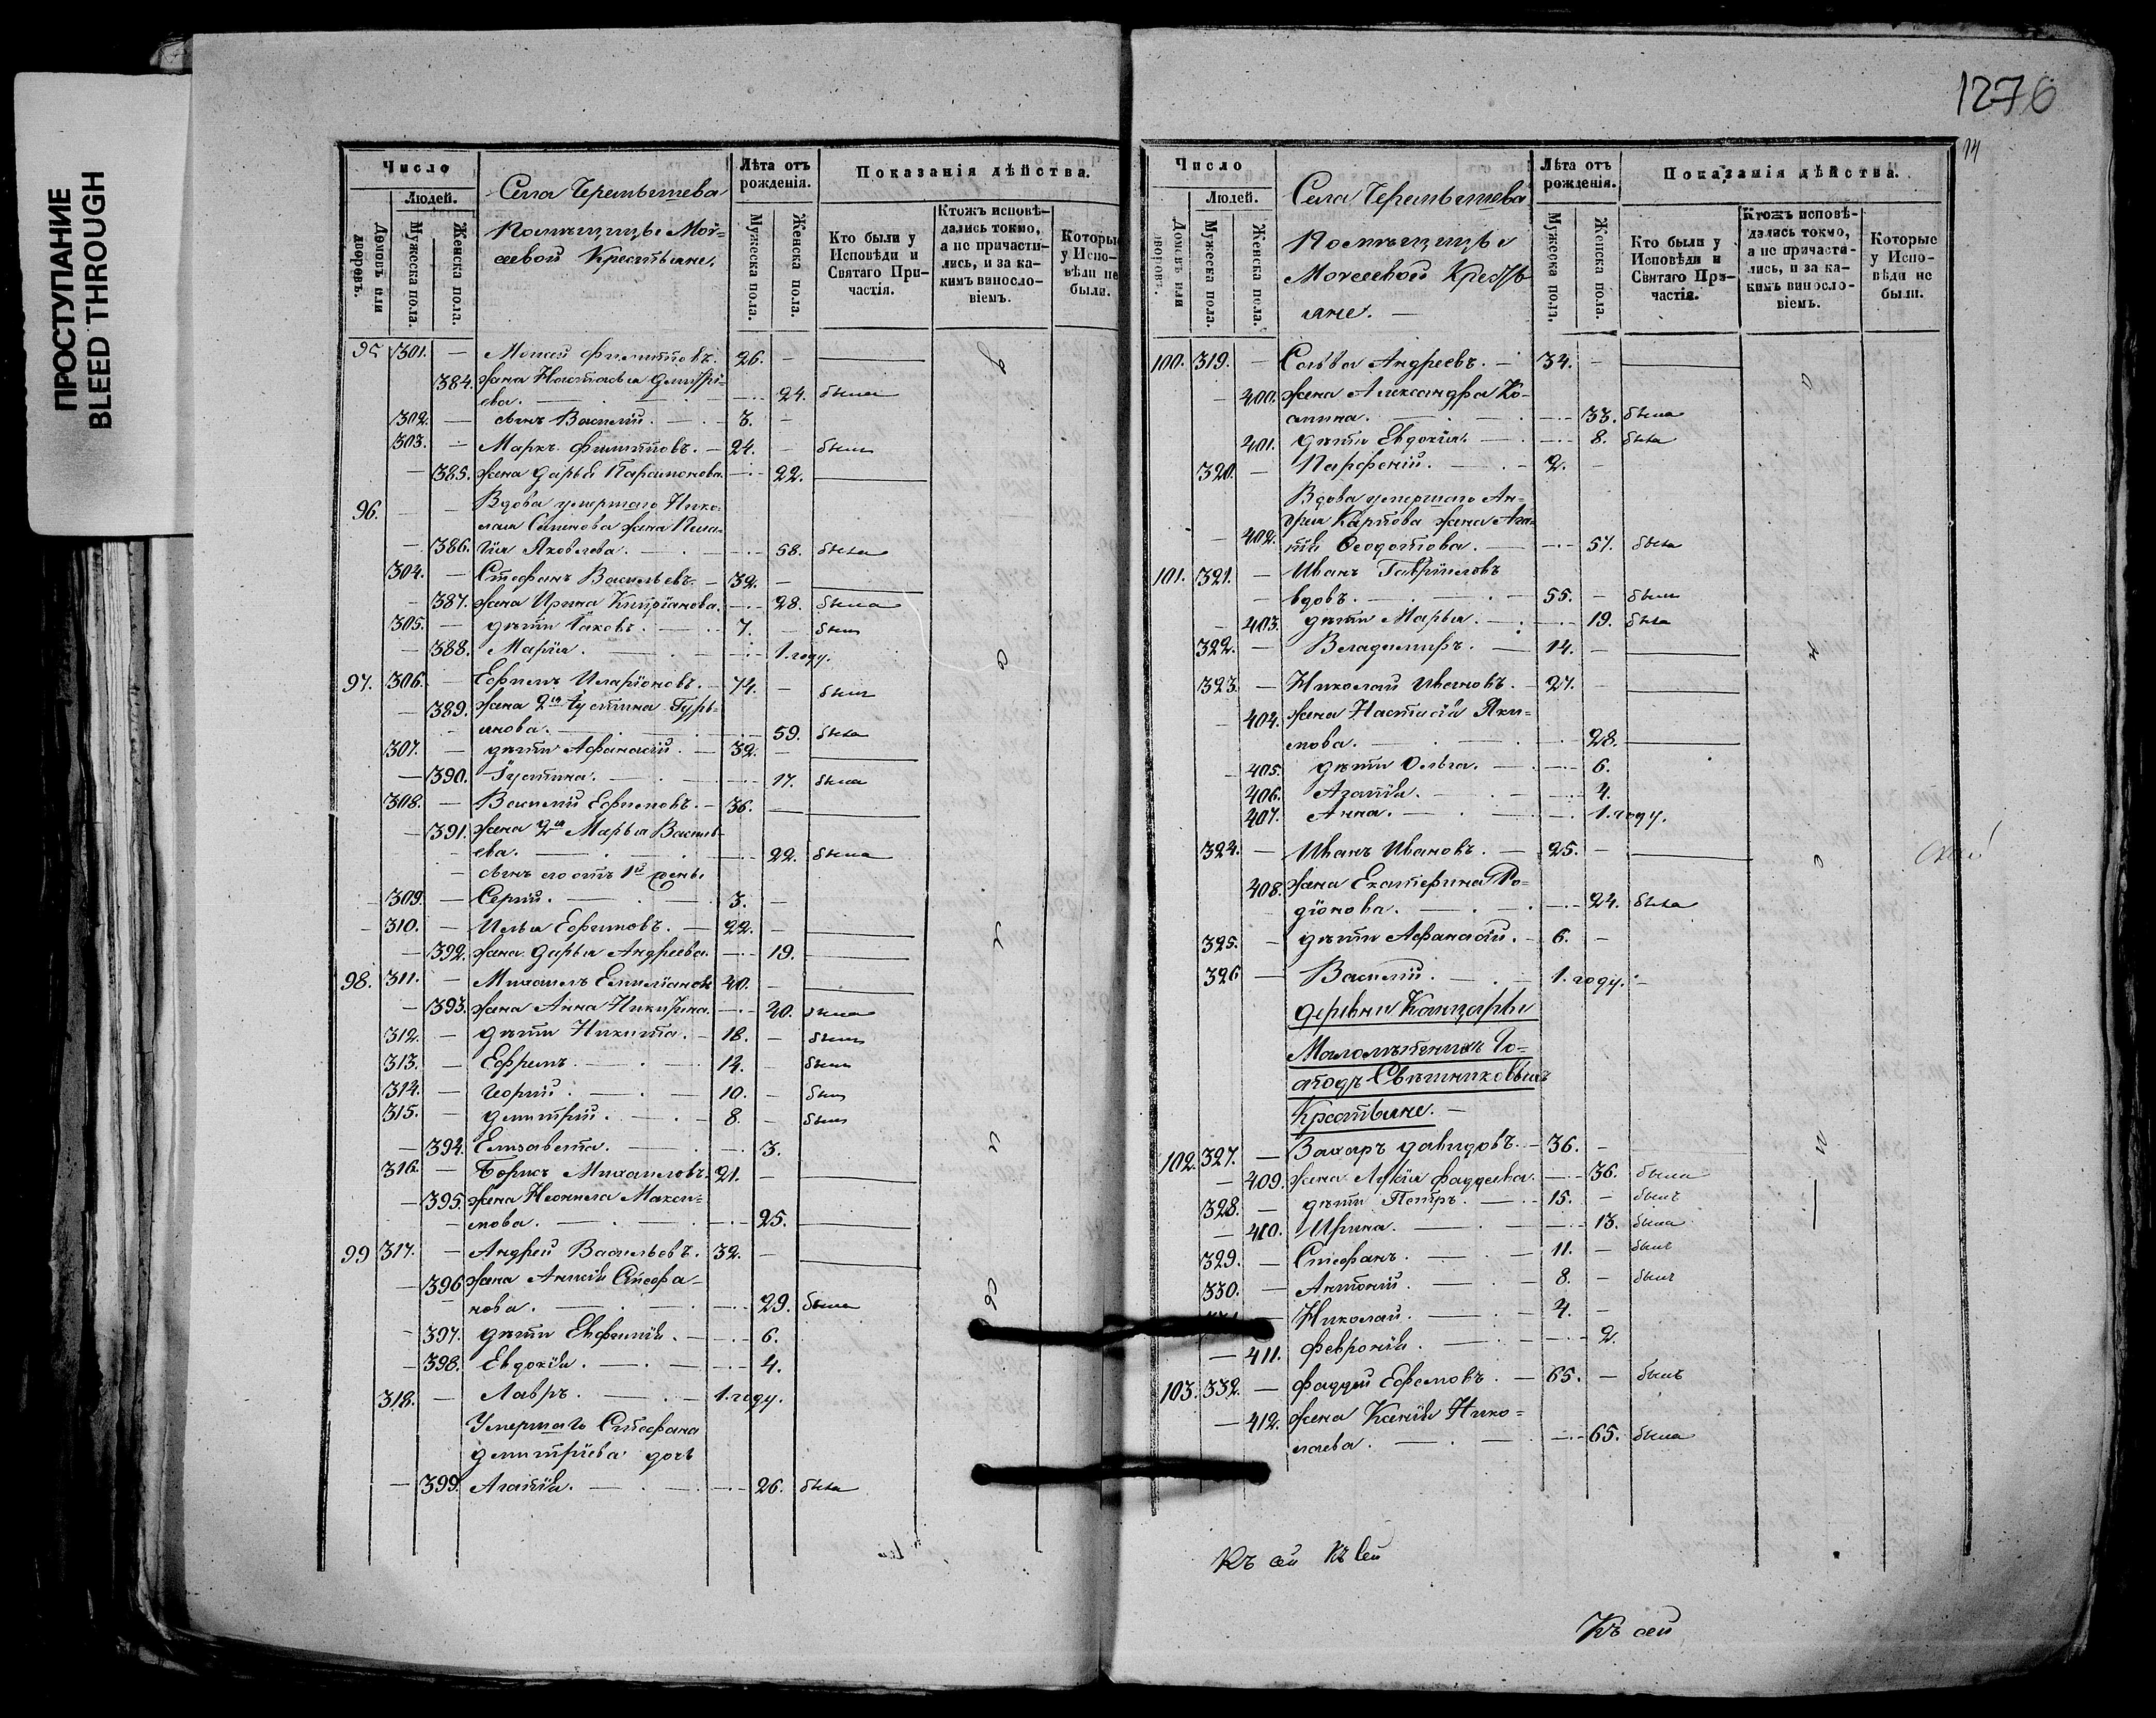 ПРОСТУПАНИЕ
BLEED THROUGH
Число
Людей.
Домовъ или дворовъ.
Мужеска пола.
Женска пола.
Села Черемышева
Помѣщицы Мой-
сеевой Крестьяне.
Лѣта отъ рожденія.
Мужеска пола.
Женска пола.
Показанія дѣйства.
Кто были у Исповѣди и Святаго При-частія.
Ктожъ исповѣ-дались токмо, а не причасти-лись, и за ка-кимъ винословіемъ.
Которые у Испо-вѣди не были.
95 301. — Моисей Филипповъ. 26. —
384. жена Настасья Дмитрі-
ева. — 24. была
302. — сынъ Василій. — 3. —
303. — Маркъ Филипповъ. — 24. — былъ
385. жена Дарья Парамонова. — 22.
96. Вдова умершаго Нико-
лая Семенова жена Пела-
386. гія Яковлева. — 58. была
304. — Стефанъ Васильевъ. — 32. —
387. жена Ирина Кипріанова. — 28. была
305. — дѣти Іаковъ. — 7. — былъ
388. Марія. — 1. году.
97. 306. — Ефимъ Иларіоновъ. — 74. — былъ
389. жена 2я Іустина Гурь-
янова. — 59. была
307. — дѣти Афанасій. — 32. —
390. Іустина. — 17. была
308. — Василій Ефимовъ. — 36. —
391. жена 2я Марья Василь-
ева. — 22. была
сынъ его отъ 1й жены
309. — Сергій. — 3. —
310. — Илья Ефимовъ. — 22. —
392. жена Дарья Андреева. — 19.
98. 311. — Михаилъ Емельяновъ 40. —
393. жена Анна Никифорова. — 40. была
312. — дѣти Никита. — 18. — былъ
313. — Ефремъ. — 14. — былъ
314. — Георгій. — 10. — былъ
315. — Димитрій. — 8. — былъ
394. Елизавета. — 3.
316. — Борисъ Михаиловъ. 21. —
395. жена Неонила Макси-
мова. — 25.
99 317. — Андрей Васильевъ. 32. —
396 жена Анисія Стефа-
нова. — 29. была
397. дѣти Евфимія. — 6.
398. Евдокія. — 4.
318. — Лавръ. — 1. году.
Умершаго Стефана
Димитріева дочь
399. Агапія. — 26. была
1276
14
Число
Людей.
Домовъ или дворовъ.
Мужеска пола.
Женска пола.
Села Черемышева
Помѣщицы
Моисеевой Кресть-
яне. —
Лѣта отъ рожденія.
Мужеска пола.
Женска пола.
Показанія дѣйства.
Кто были у Исповѣди и Святаго При-частія.
Ктожъ исповѣ-дались токмо, а не причасти-лись, и за ка-кимъ винословіемъ.
Которые у Испо-вѣди не были.
100. 319. — Савва Андреевъ. — 34. —
400. жена Александра Ко-
смина. — 33. была
401. дѣти Евдокія. — 8. была
320. — Парфеній. — 2. —
Вдова умершаго Ан-
дрея Карпова жена Ага-
402. пія Феодотова. — 51. была
101. 321. — Иванъ Гавриловъ
вдовъ. — 55. — былъ
403. дѣти Марья. — 19. была
322. — Владимиръ. — 14. —
323. — Николай Ивановъ. — 27. —
404. жена Настасія Яки-
мова. — 28.
405. дѣти Ольга. — 6.
406. Агапія. — 4.
407. Анна. — 1. году.
324. — Иванъ Ивановъ. — 25. —
408. жена Екатерина Ро-
діонова. — 24. была
325. — дѣти Афанасій. — 6. —
326 — Василій. — 1. году. —
деревни Канцарвы
Малолѣтнихъ Го-
сподъ Свѣшниковыхъ
Крестьяне. —
102. 327. — Захаръ Давидовъ. — 36. —
409. жена Лукія Фаддеева. — 36. была
328. — дѣти Петръ. — 15. — былъ
410. Ирина. — 13. была
329. — Стефанъ. — 11. — былъ
330. — Антоній. — 8. — былъ
Николай. — 4. —
411. Февронія. — 2.
103. 332. — Фаддей Ефремовъ. — 65. — былъ
412. жена Ксенія Нико-
лаева. — 65. была
Къ сей Къ сей
Къ сей